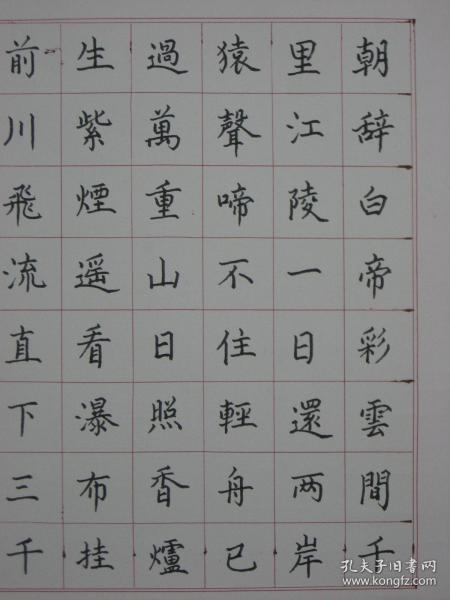 朝辞白帝彩雲間千
里江陵一日還两岸
猿聲啼不住輕舟已
過萬重山日照香爐
生紫煙遥看瀑布挂
前川飛流直下三千
孔夫子旧书网
www.kongfz.com